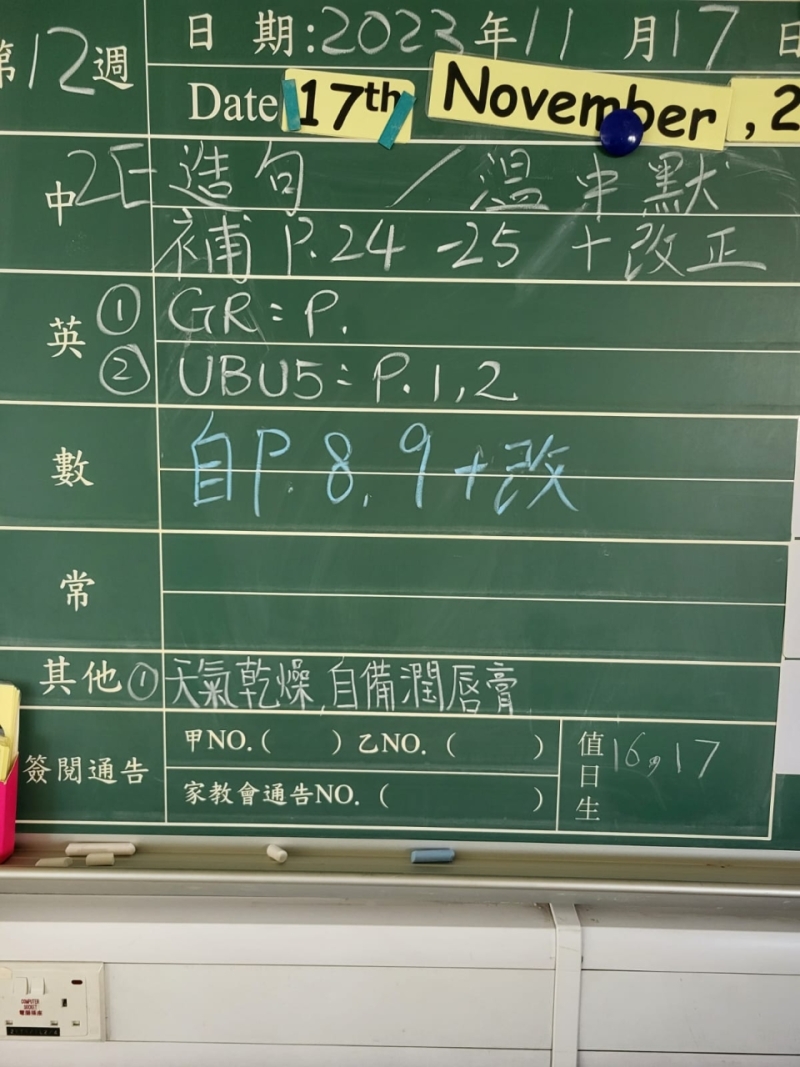 第12週
日 期:2023年11月17日
Date 17th November, 2
中 2E 造句 / 溫中默
補 P.24-25 + 改正
英 ① GR: P.
② UBU5: P.1,2
數 自P.8,9+改
常
其他 ① 天氣乾燥,自備潤唇膏
簽閱通告 甲NO.( ) 乙NO.( )
家教會通告NO.( )
值日生 16,17
COMPUTER SOCKET
電腦插座